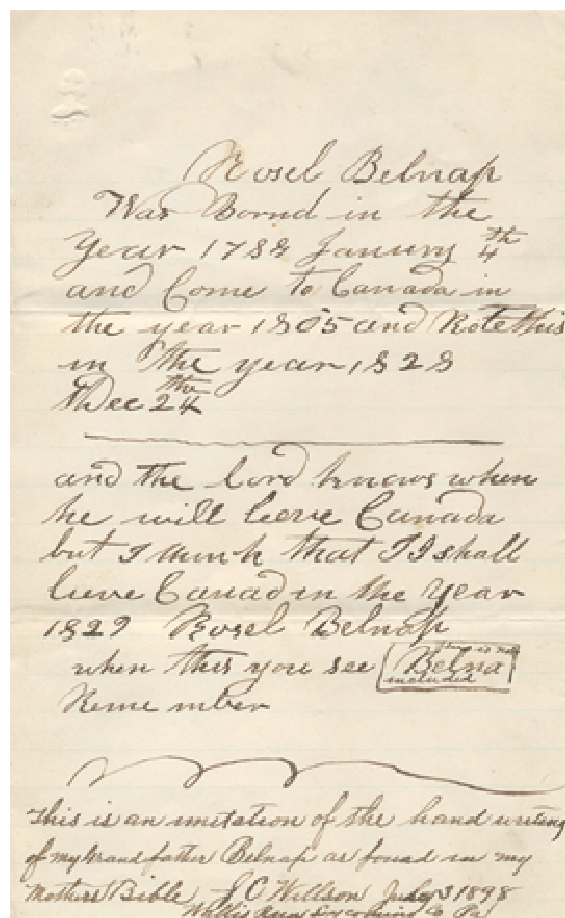 Rosel Belnap
Was Bornd in the
Year 1789 January 4th
and Come to Canada in
the year 1805 and Rote this
in the year 1828
Dec 24th
and the lord knows when
he will leeve Canada
but I think that I I shall
leeve Canad in the Year
1829 Rosel Belnap
when this you see Belna
this is not
included
Reme mber
This is an imitation of the hand writing
of my Grand father Belnap as found in my
Mothers Bible J C Willson July 31 1898